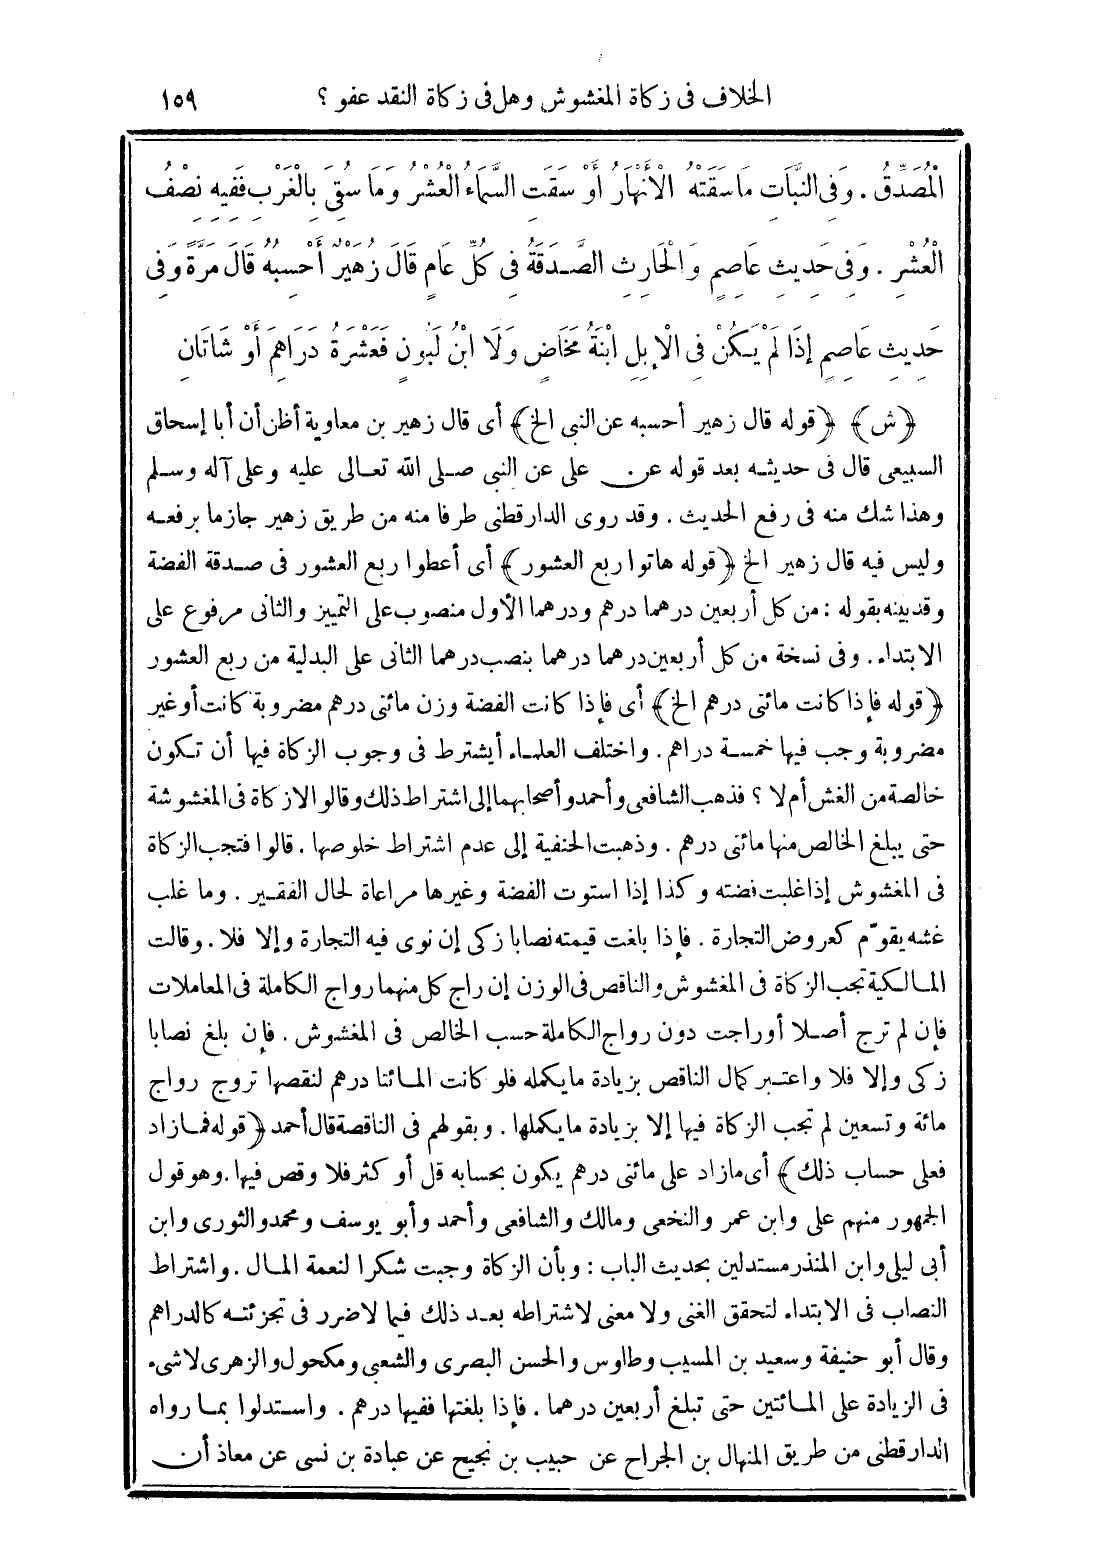 الخلاف فى زكاة المغشوش وهل فى زكاة النقد عفو ؟ ١٥٩
الْمُصَدِّقُ . وَفِى النَّبَاتِ مَا سَقَتْهُ الْأَنْهَارُ أَوْ سَقَتِ السَّمَاءُ الْعُشْرُ وَمَا سُقِىَ بِالْغَرْبِ فَفِيهِ نِصْفُ
الْعُشْرِ . وَفِى حَدِيثِ عَاصِمٍ وَالْحَارِثِ الصَّدَقَةُ فِى كُلِّ عَامٍ قَالَ زُهَيْرٌ أَحْسِبُهُ قَالَ مَرَّةً وَفِى
حَدِيثِ عَاصِمٍ إِذَا لَمْ يَكُنْ فِى الْإِبِلِ ابْنَةُ مَخَاضٍ وَلَا ابْنُ لَبُونٍ فَعَشْرَةُ دَرَاهِمَ أَوْ شَاتَانِ
﴿ش﴾ ﴿قوله قال زهير أحسبه عن النبى الخ﴾ أى قال زهير بن معاوية أظن أن أبا إسحاق
السبيعى قال فى حديثه بعد قوله عن على عن النبى صلى الله تعالى عليه وعلى آله وسلم
وهذا شك منه فى رفع الحديث . وقد روى الدارقطنى طرفا منه من طريق زهير جازما برفعه
وليس فيه قال زهير الخ ﴿قوله هاتوا ربع العشور﴾ أى أعطوا ربع العشور فى صدقة الفضة
وقد بينه بقوله : من كل أربعين درهما درهم ودرهما الأول منصوب على التمييز والثانى مرفوع على
الابتداء . وفى نسخة من كل أربعين درهما درهما بنصب درهما الثانى على البدلية من ربع العشور
﴿قوله فإذا كانت مائتى درهم الخ﴾ أى فإذا كانت الفضة وزن مائتى درهم مضروبة كانت أو غير
مضروبة وجب فيها خمسة دراهم . واختلف العلماء أيشترط فى وجوب الزكاة فيها أن تكون
خالصة من الغش أم لا ؟ فذهب الشافعى وأحمد وأصحابهما إلى اشتراط ذلك وقالوا لا زكاة فى المغشوشة
حتى يبلغ الخالص منها مائتى درهم . وذهبت الحنفية إلى عدم اشتراط خلوصها . قالوا فتجب الزكاة
فى المغشوش إذا غلبت فضته وكذا إذا استوت الفضة وغيرها مراعاة لحال الفقير . وما غلب
غشه يقوّم كعروض التجارة . فإذا بلغت قيمته نصابا زكى إن نوى فيه التجارة وإلا فلا . وقالت
المالكية تجب الزكاة فى المغشوش والناقص فى الوزن إن راج كل منهما رواج الكاملة فى المعاملات
فإن لم ترج أصلا أو راجت دون رواج الكاملة حسب الخالص فى المغشوش . فإن بلغ نصابا
زكى وإلا فلا واعتبر كمال الناقص بزيادة ما يكمله فلو كانت المائتا درهم لنقصها تروج رواج
مائة وتسعين لم تجب الزكاة فيها إلا بزيادة ما يكملها . وبقولهم فى الناقصة قال أحمد ﴿قوله فما زاد
فعلى حساب ذلك﴾ أى ما زاد على مائتى درهم يكون بحسابه قل أو كثر فلا وقص فيها . وهو قول
الجمهور منهم على وابن عمر والنخعى ومالك والشافعى وأحمد وأبو يوسف ومحمد والثورى وابن
أبى ليلى وابن المنذر مستدلين بحديث الباب : وبأن الزكاة وجبت شكرا لنعمة المال . واشتراط
النصاب فى الابتداء لتحقق الغنى ولا معنى لاشتراطه بعد ذلك فيما لا ضرر فى تجزئته كالدراهم
وقال أبو حنيفة وسعيد بن المسيب وطاوس والحسن البصرى والشعبى ومكحول والزهرى لا شىء
فى الزيادة على المائتين حتى تبلغ أربعين درهما . فإذا بلغتها ففيها درهم . واستدلوا بما رواه
الدارقطنى من طريق المنهال بن الجراح عن حبيب بن نجيح عن عبادة بن نسى عن معاذ أن